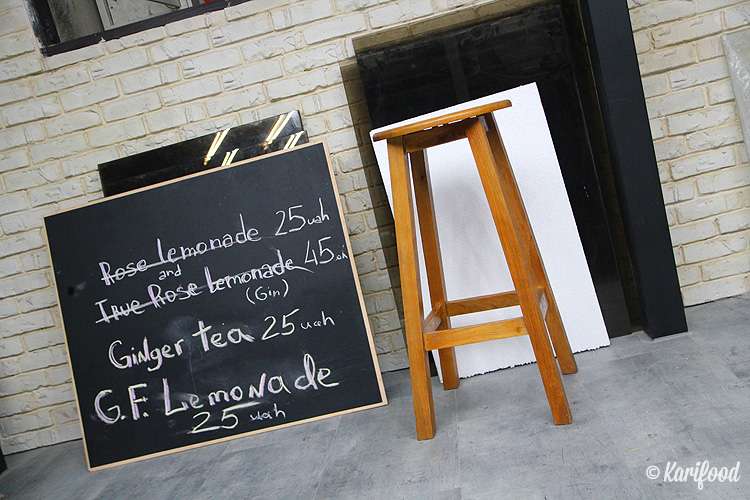 Rose Lemonade 25 uah
and
True Rose Lemonade 45 uah
(Gin)
Ginger tea 25 uah
G.F. Lemonade
25 uah
© Karifood